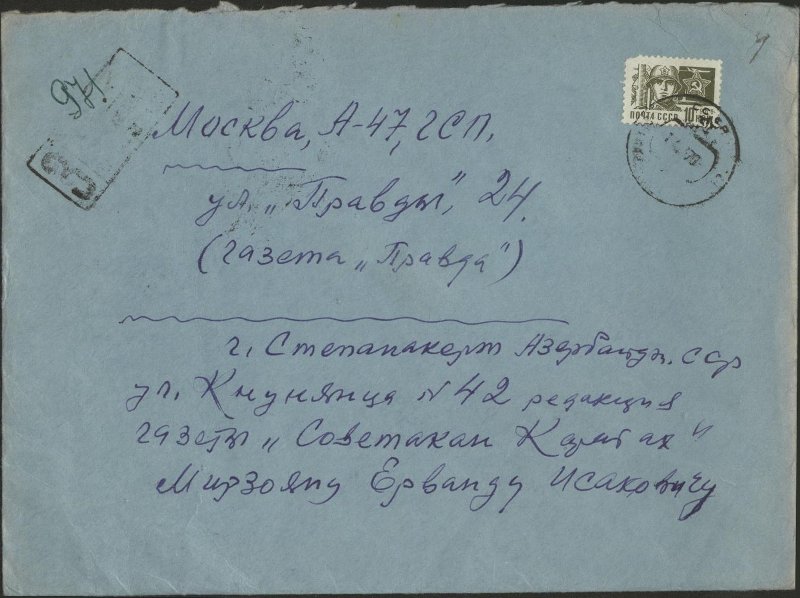 971.
Москва, А-47, ГСП,
ул. „Правды", 24.
(газета „Правда")
г. Степанакерт Азербайдж. ССР
ул. Кнунянца № 42 редакция
газеты „Советакан Карабах"
Мирзояну Ерванду Исаковичу
ПОЧТА СССР 10